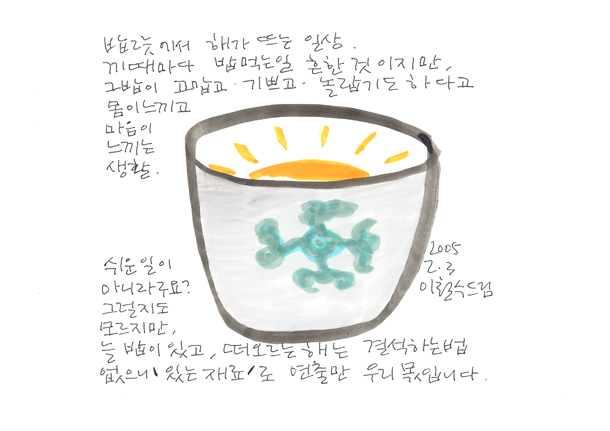 밥그릇에서 해가 뜨는 일상.
끼때마다 밥먹는일 흔한 것이지만,
그밥이 고맙고·기쁘고·놀랍기도 하다고
몸이느끼고
마음이
느끼는
생활.
쉬운일이
아니라구요?
그럴지도
모르지만,
늘 밥이 있고, 떠오르는 해는 결석하는법
없으니 '있는 재료'로 연출만 우리 몫입니다.
2005
2.3
이철수드림